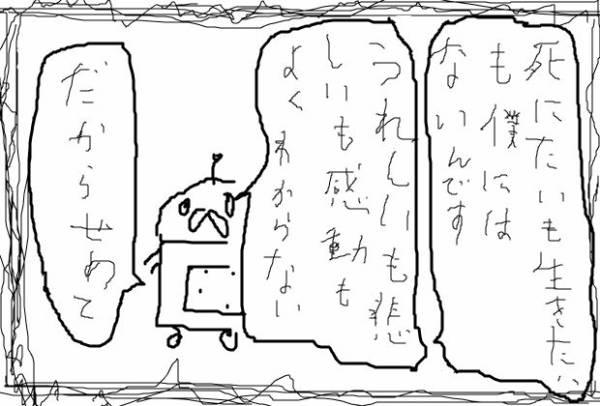 死にたいも生きたい
も僕には
ないんです
うれしいも悲
しいも感動も
よくわからない
だからせめて